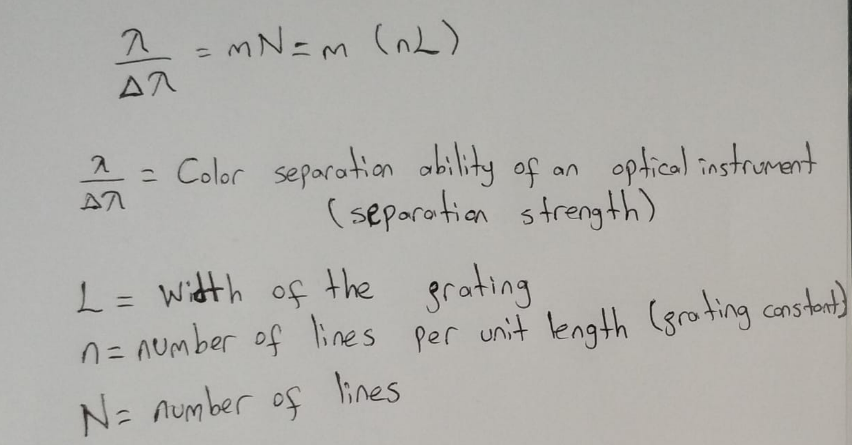 λ/Δλ = mN = m (nL)
λ/Δλ = Color separation ability of an optical instrument
(separation strength)
L = Width of the grating
n = number of lines per unit length (grating constant)
N = number of lines